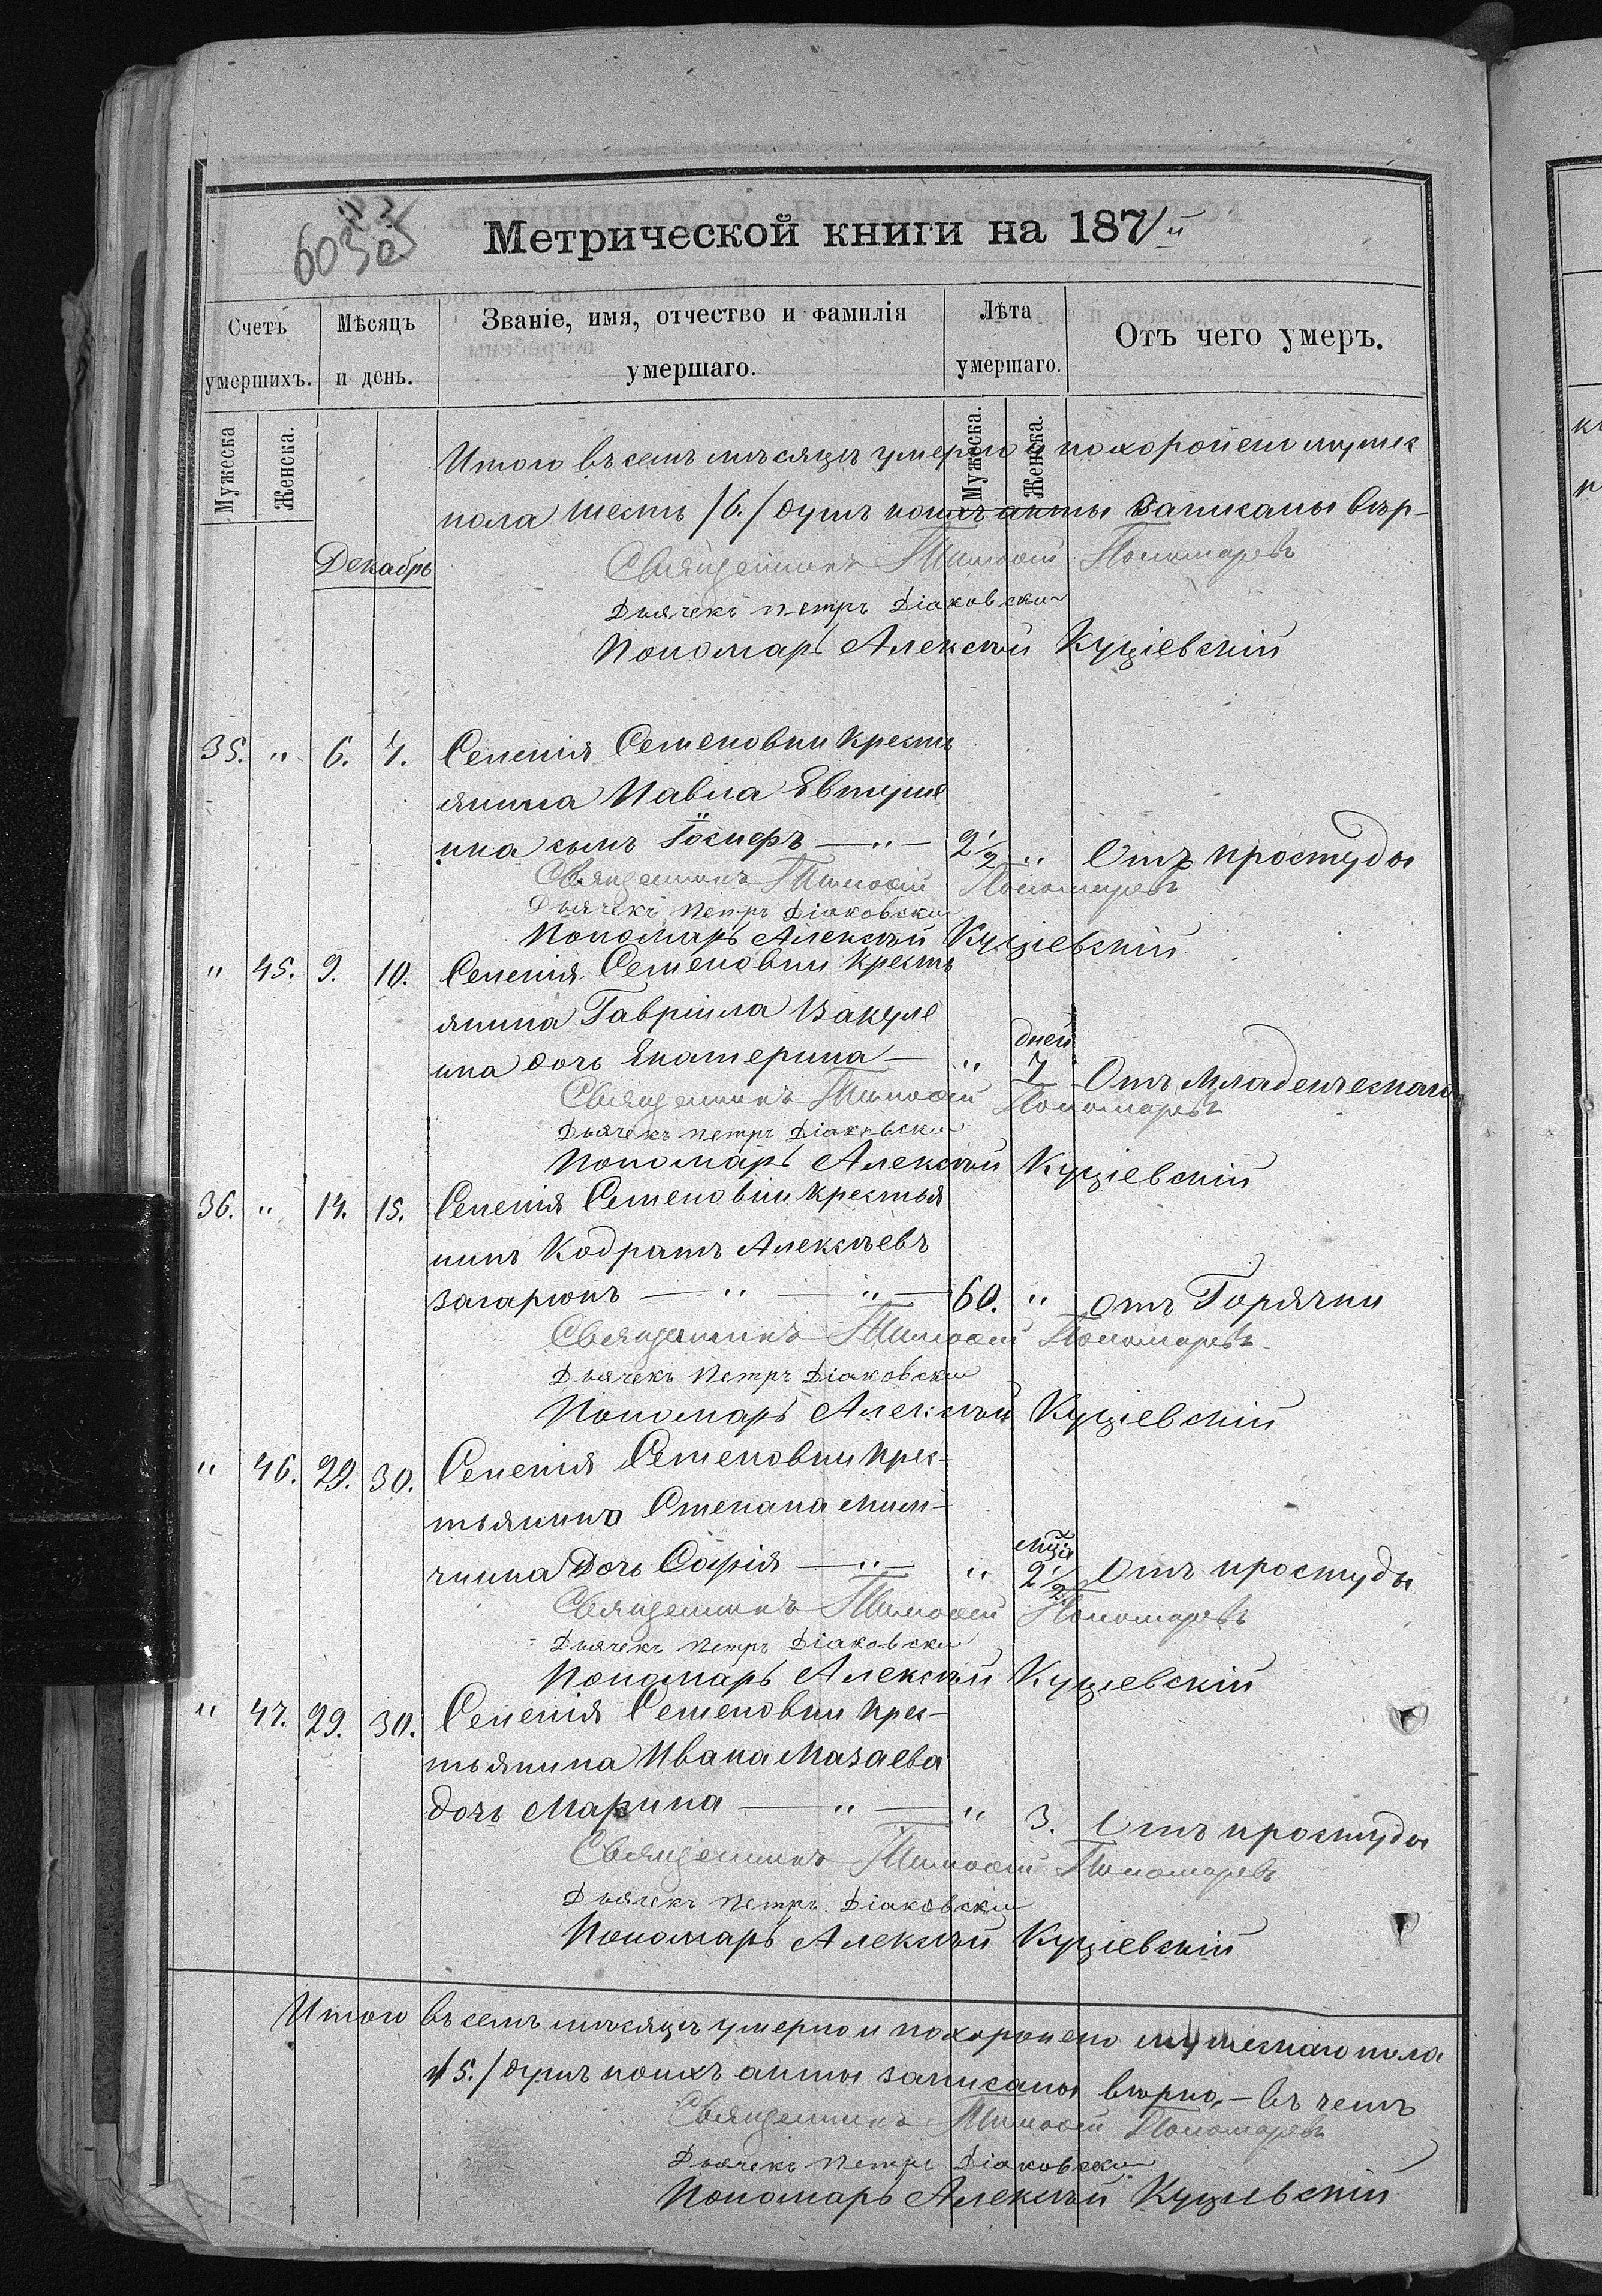 Метрической книги на 1871й
Счетъ умершихъ.
Мѣсяцъ и день.
Званіе, имя, отчество и фамилія умершаго.
Лѣта умершаго.
Отъ чего умеръ.
Мужеска
Женска.
Мужеска.
Женска.
Итого въ семъ мѣсяцѣ умерло и похоронено мужеск
пола шесть /6./ душъ коихъ акты записаны вѣр-
Декабрь
Священникъ Тимоѳей Пономаревъ
Дьячекъ Петръ Діаковски
Пономарь Алексѣй Куціевскій
35. " 6. 7. Селенія Семеновки кресть
янина Павла Евтуше
нка сынъ Іосифъ — " — 2 1/2 " Отъ простуды
Священникъ Тимоѳей Пономаревъ
Дьячекъ Петръ Діаковски
Пономарь Алексѣй Куціевскій
" 45. 9. 10. Селенія Семеновки кресть
янина Гавріила Вакуле
дней
нка дочь Екатерина — " 7 Отъ младенческаго
Священникъ Тимоѳей Пономаревъ
Дьячекъ Петръ Діаковски
Пономарь Алексѣй Куціевскій
36. " 14. 15. Селенія Семеновки крестья
нинъ Кодратъ Алексѣевъ
Загарюкъ — " — " — 60. " отъ Горячки
Священникъ Тимоѳей Пономаревъ
Дьячекъ Петръ Діаковски
Пономарь Алексѣй Куціевскій
" 46. 29. 30. Селенія Семеновки крес-
тьянина Степана
мца
дочь Софія — " — " 2 1/2 Отъ простуды
Священникъ Тимоѳей Пономаревъ
Дьячекъ Петръ Діаковски
Пономарь Алексѣй Куціевскій
" 47. 29. 30. Селенія Семеновки крес-
тьянина Ивана Мазаева
дочь Марина — " — " 3. Отъ простуды
Священникъ Тимоѳей Пономаревъ
Дьячекъ Петръ Діаковски
Пономарь Алексѣй Куціевскій
Итого въ семъ мѣсяцѣ умерло и похоронено мужескаго пола
/5./ душъ коихъ акты записаны вѣрно, — въ чемъ
Священникъ Тимоѳей Пономаревъ
Дьячекъ Петръ Діаковски
Пономарь Алексѣй Куціевскій